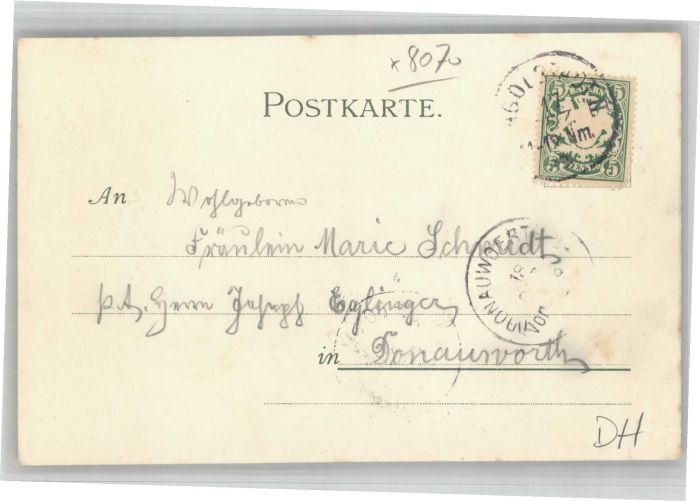 x8070
POSTKARTE.
BAYERN
5 5
5 5
An Wohlgeboren
Fräulein Marie Schmidt
p. A. Herrn Joseph
in Donauwörth
DH